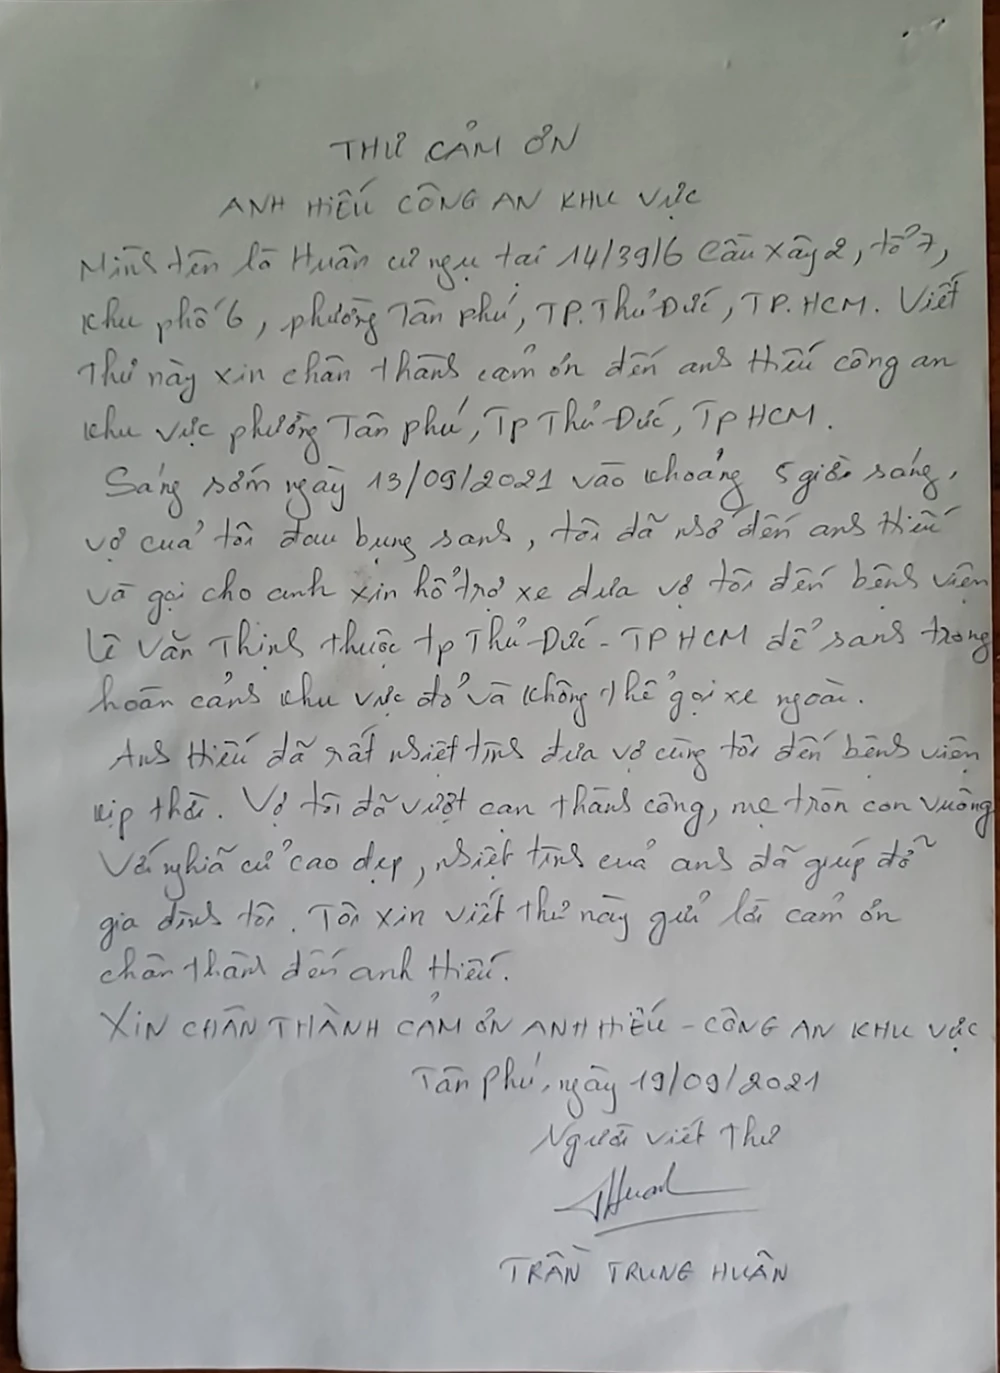 THƯ CẢM ƠN
ANH HIẾU CÔNG AN KHU VỰC
Mình tên là Huân cư ngụ tại 14/39/6 Cầu Xây 2, tổ 7,
khu phố 6, phường Tân Phú, TP. Thủ Đức, TP. HCM. Viết
thư này xin chân thành cảm ơn đến anh Hiếu công an
khu vực phường Tân Phú, Tp Thủ Đức, Tp HCM.
Sáng sớm ngày 13/09/2021 vào khoảng 5 giờ sáng,
vợ của tôi đau bụng sanh, tôi đã nhớ đến anh Hiếu
và gọi cho anh xin hổ trợ xe đưa vợ tôi đến bệnh viện
Lê Văn Thịnh thuộc tp Thủ Đức - TP HCM để sanh trong
hoàn cảnh khu vực đỏ và không thể gọi xe ngoài.
Anh Hiếu đã rất nhiệt tình đưa vợ cùng tôi đến bệnh viện
kịp thời. Vợ tôi đã vượt cạn thành công, mẹ tròn con vuông
Với nghĩa cử cao đẹp, nhiệt tình của anh đã giúp đỡ
gia đình tôi. Tôi xin viết thư này gửi lời cảm ơn
chân thành đến anh Hiếu.
XIN CHÂN THÀNH CẢM ƠN ANH HIẾU - CÔNG AN KHU VỰC
Tân Phú, ngày 19/09/2021
Người viết thư
Huân
TRẦN TRUNG HUÂN